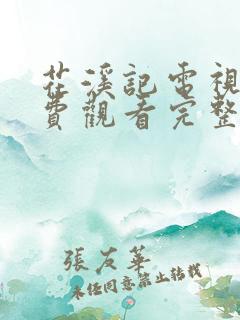 茌溪記電視
費觀看完整
張友華
未經同意禁止轉載